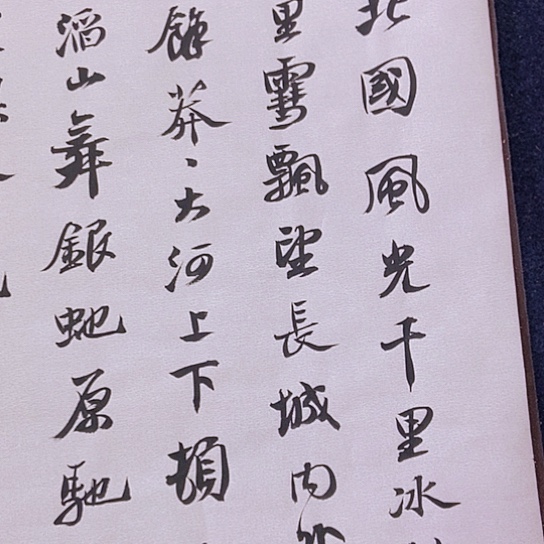 北國風光千里冰
里雪飄望長城內外
餘莽〻大河上下頓
滔山舞銀虵原馳